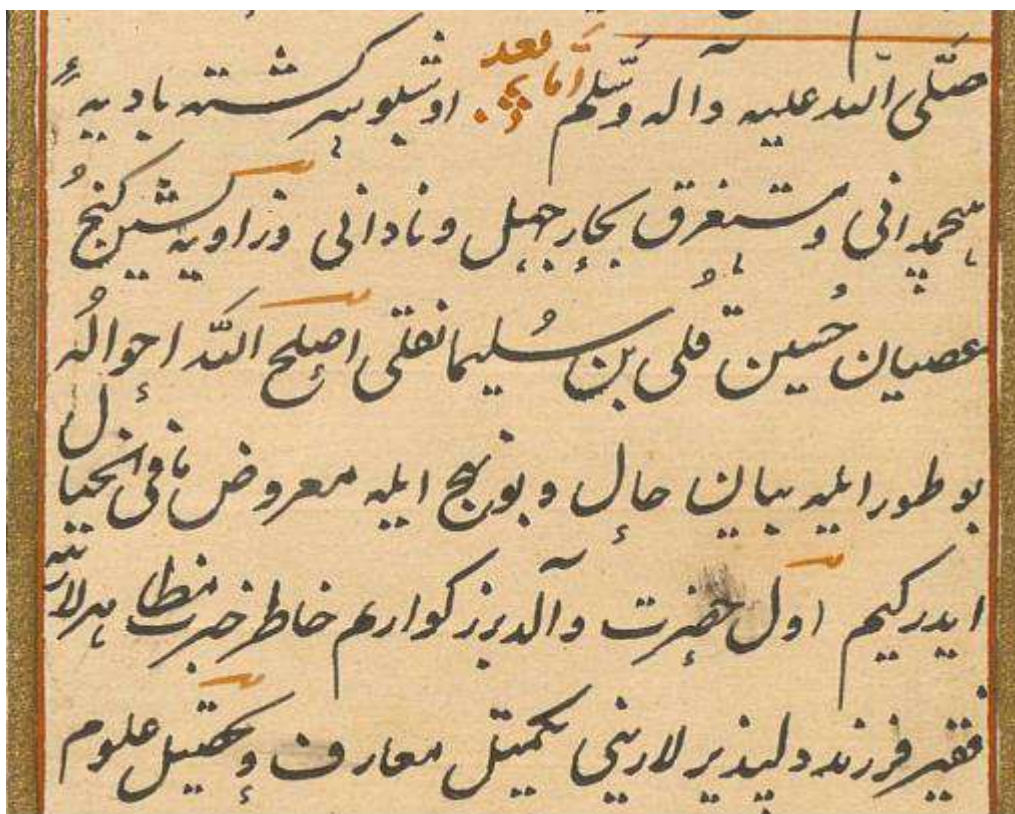 صَلَّی اللّه علیه وآله وَسَّلم امّا بعد اوشبو سرکشته بادیهٔ
هیچمدانی و مستغرق بحارِ جهل و نادانی و زاویه نشین کنجُ
عصیان حُسین قُلی بن سُلیمانقلی اصلح اللّه احوالُه
بو طور ایله بیان حال و بو نهج ایله معروض ما فی الخیال
ایدرکیم اول حضرت والد بزرکوارم خاطر خبرت مظاهرلارینه
فقیر فرزند دلپذیرلارینی تکمیل معارف و تحصیل علوم